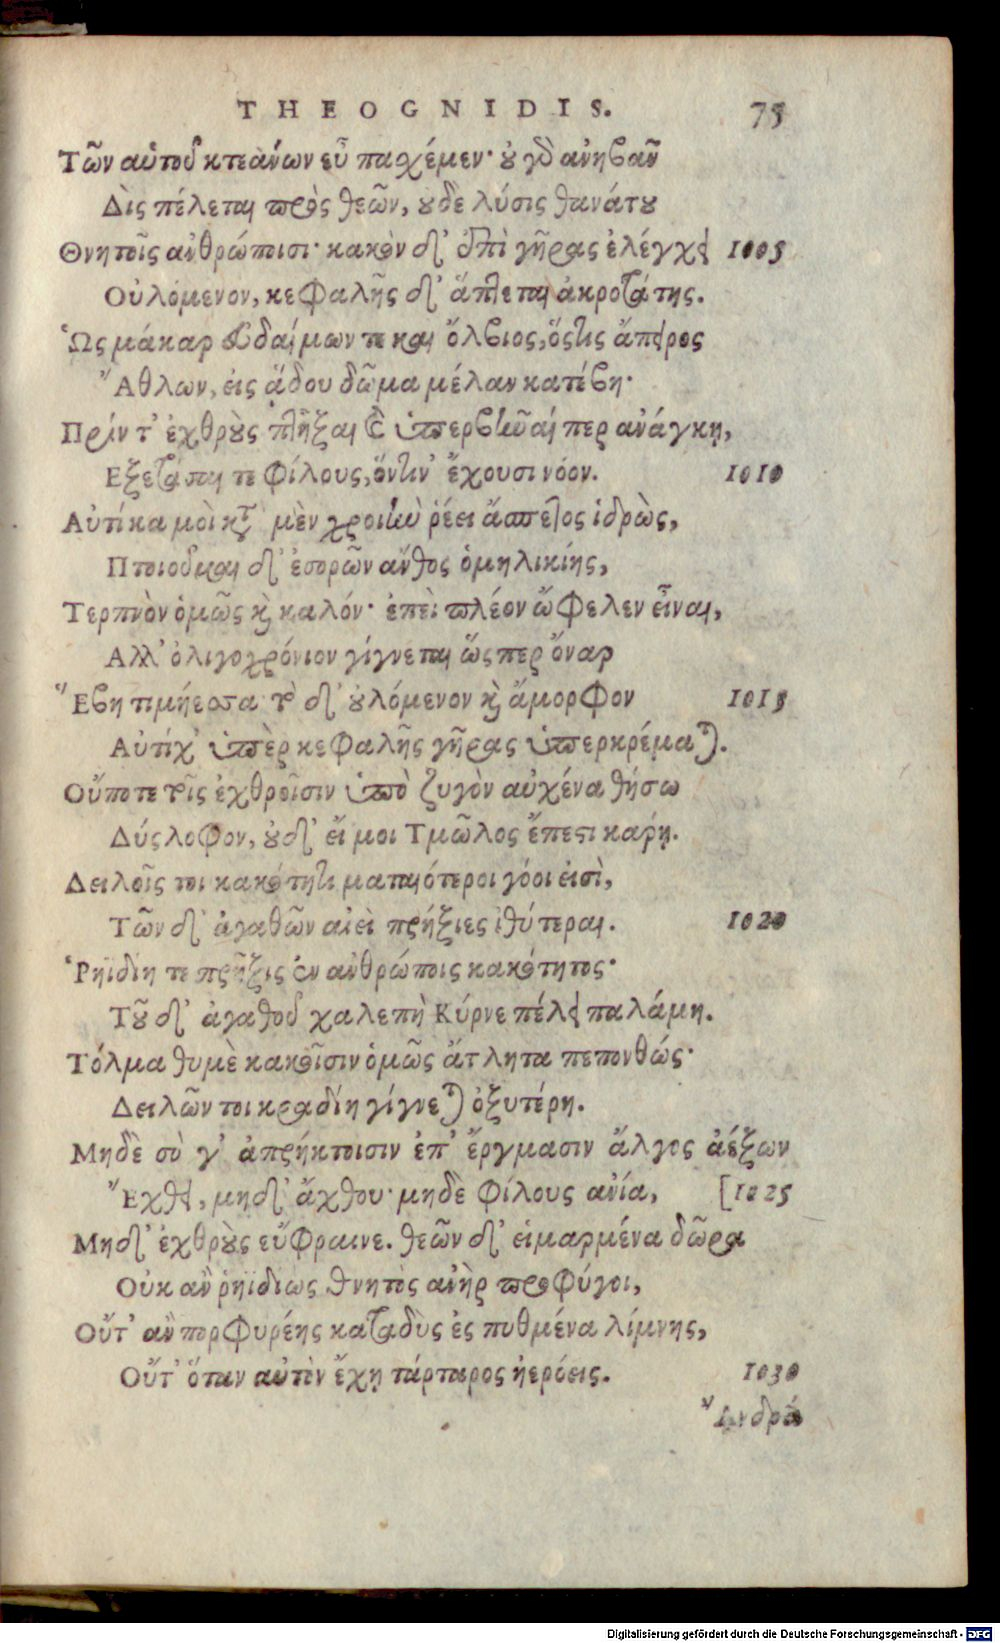 THEOGNIDIS. 75
Τῶν αὑτοῦ κτεάνων εὖ παχέμεν· οὐ γὸ ἀνηβᾶν
Δὶς πέλεται πρὸς θεῶν, οὐδὲ λύσις θανάτου
Θνητοῖς ἀνθρώποισι· κακὸν δ' ἐπὶ γῆρας ἐλέγχει 1005
Οὐλόμενον, κεφαλῆς δ' ἅπτεται ἀκροτάτης.
Ὡς μάκαρ εὐδαίμων τε καὶ ὄλβιος, ὅστις ἄπειρος
Ἄθλων, εἰς ἄδου δῶμα μέλαν κατέβη·
Πρίν τ' ἐχθροὺς πτῆξαι καὶ ὑπερβῆναί περ ἀνάγκη,
Εξετάσαι τε φίλους, ὅντιν' ἔχουσι νόον. 1010
Αὐτίκα μοὶ κατὰ μὲν χροιὴν ῥέει ἄσπετος ἱδρὼς,
Πτοιοῦμαι δ' ἐσορῶν ἄνθος ὁμηλικίης,
Τερπνὸν ὁμῶς καὶ καλόν· ἐπεὶ πλέον ὤφελεν εἶναι,
Αλλ' ὀλιγοχρόνιον γίγνεται ὥσπερ ὄναρ
Ἥβη τιμήεσσα τὸ δ' οὐλόμενον καὶ ἄμορφον 1015
Αὐτίχ' ὑπὲρ κεφαλῆς γῆρας ὑπερκρέμαται.
Οὔποτε τοῖς ἐχθροῖσιν ὑπὸ ζυγὸν αὐχένα θήσω
Δύσλοφον, οὐδ' εἴ μοι Τμῶλος ἔπεστι κάρῃ.
Δειλοῖς τοι κακότητι ματαιότεροι γόοι εἰσὶ,
Τῶν δ' ἀγαθῶν αἰεὶ πρήξιες ἰθύτεραι. 1020
Ῥηϊδίη τε πρῆξις ἐν ἀνθρώποις κακότητος·
Τοῦ δ' ἀγαθοῦ χαλεπὴ Κύρνε πέλει παλάμη.
Τόλμα θυμὲ κακοῖσιν ὁμῶς ἄτλητα πεπονθώς·
Δειλῶν τοι κραδίη γίγνεται ὀξυτέρη.
Μηδὲ σὺ γ' ἀπρήκτοισιν ἐπ' ἔργμασιν ἄλγος ἀέξων
Ἔχθει, μηδ' ἄχθου· μηδὲ φίλους ἀνία, [1025
Μηδ' ἐχθροὺς εὔφραινε. θεῶν δ' εἱμαρμένα δῶρα
Οὐκ ἂν ῥηϊδίως θνητὸς ἀνὴρ προφύγοι,
Οὔτ' ἂν πορφυρέης καταδὺς ἐς πυθμένα λίμνης,
Οὔτ' ὅταν αὐτὸν ἔχῃ τάρταρος ἠερόεις. 1030
Ἄνδρά
Digitalisierung gefördert durch die Deutsche Forschungsgemeinschaft - DFG